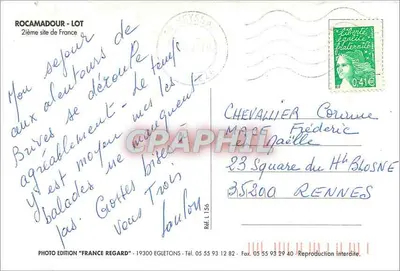 ROCAMADOUR - LOT
2ième site de France
Mon séjour
aux alentours de
Brives se déroule
agréablement - Le temps
y est moyen mes les
balades ne manquent
pas. Grosses bises
Vous Trois
Loulou
Réf. L 156
Liberté
égalité
fraternité
0,41€
CHEVALLIER Corinne
MARE Fréderic
Maëlle
23 Square du Ht BLOSNE
35200 RENNES
CPARPHIL
PHOTO EDITION "FRANCE REGARD" - 19300 EGLETONS - Tél. 05 55 93 12 82 - Fax. 05 55 93 29 40 - Reproduction Interdite.